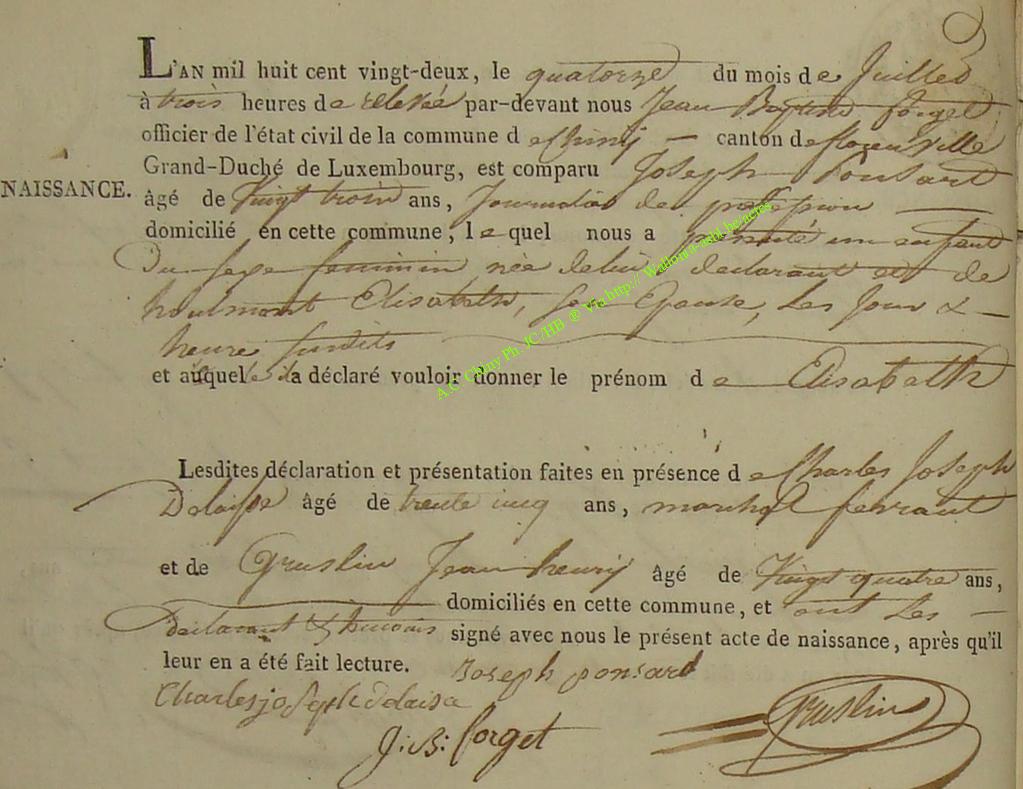 L'AN mil huit cent vingt-deux, le quatorze du mois de Juillet
à trois heures de relevée par-devant nous Jean Baptiste forget
officier de l'état civil de la commune de Chiny canton de florenville
Grand-Duché de Luxembourg, est comparu Joseph Ponsart
NAISSANCE.
âgé de Vingt trois ans, Journalier de profession
domicilié en cette commune, lequel nous a présenté un enfant
Du sexe feminin née de lui déclarant et de
Elisabeth, son Epouse, les Jour &
heure susdits
et auquel il a déclaré vouloir donner le prénom de Elisabeth
Lesdites déclaration et présentation faites en présence de Charles Joseph
Delaisse âgé de trente cinq ans, marchal ferrant
et de Gruslin Jean henry âgé de Vingt quatre ans,
domiciliés en cette commune, et ont les
declarant & temoins signé avec nous le présent acte de naissance, après qu'il
leur en a été fait lecture.
Joseph ponsard
Charles joseph delaisse
J. B. forget
Gruslin
A.C Chiny Ph. JC/HB ® Via http:// Wallonia-asbl.be/actes